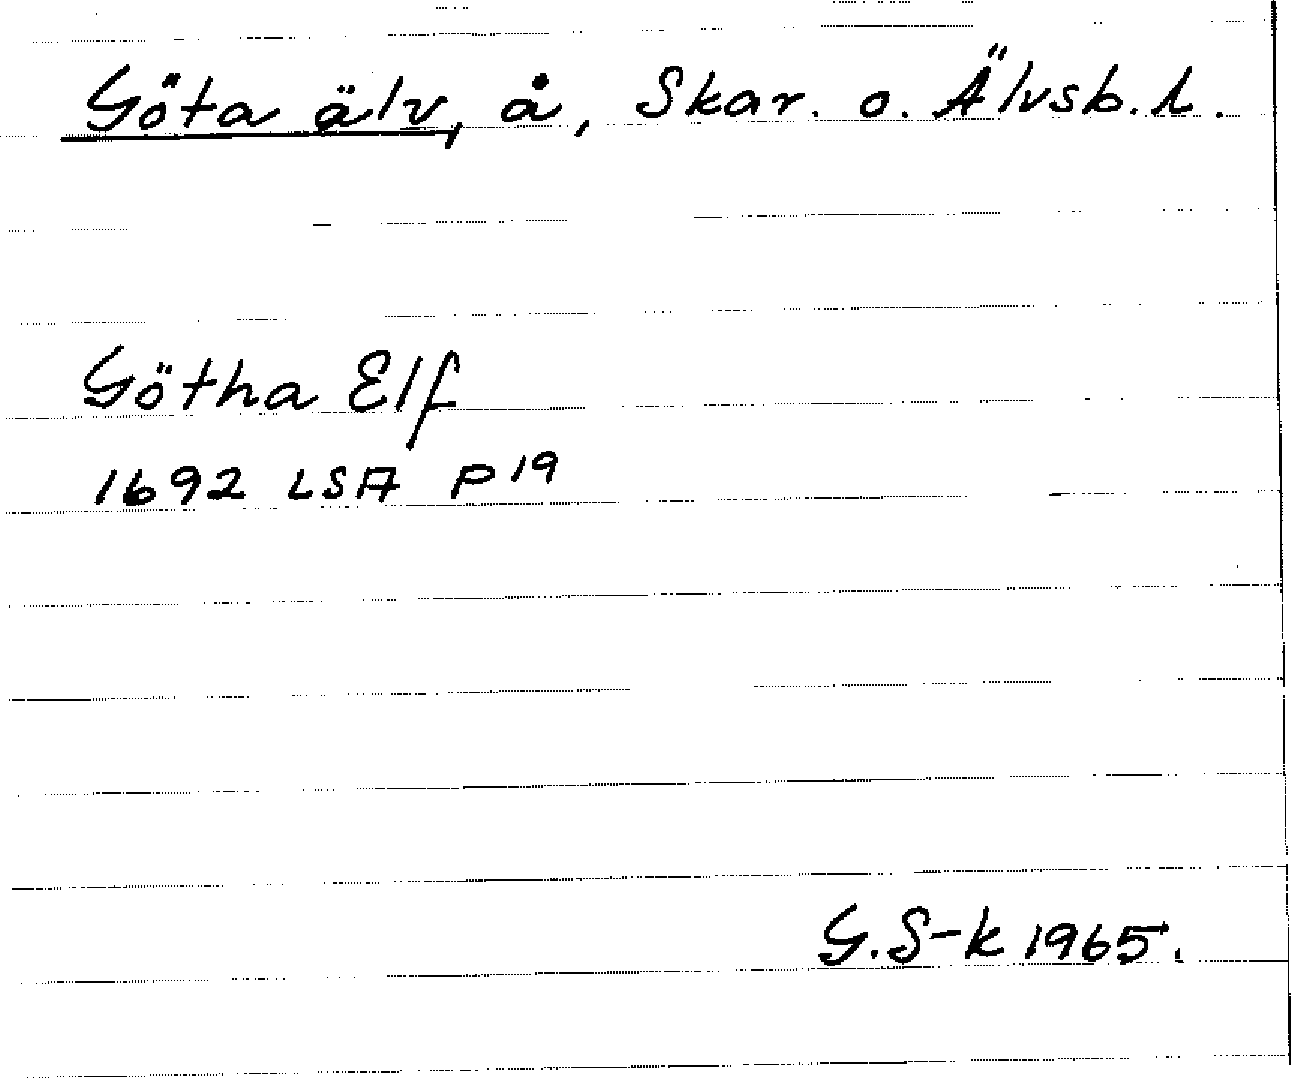 Göta älv, å, Skar. o. Älvsb. l.
Götha Elf
1692 LSA P 19
G. S-k 1965.